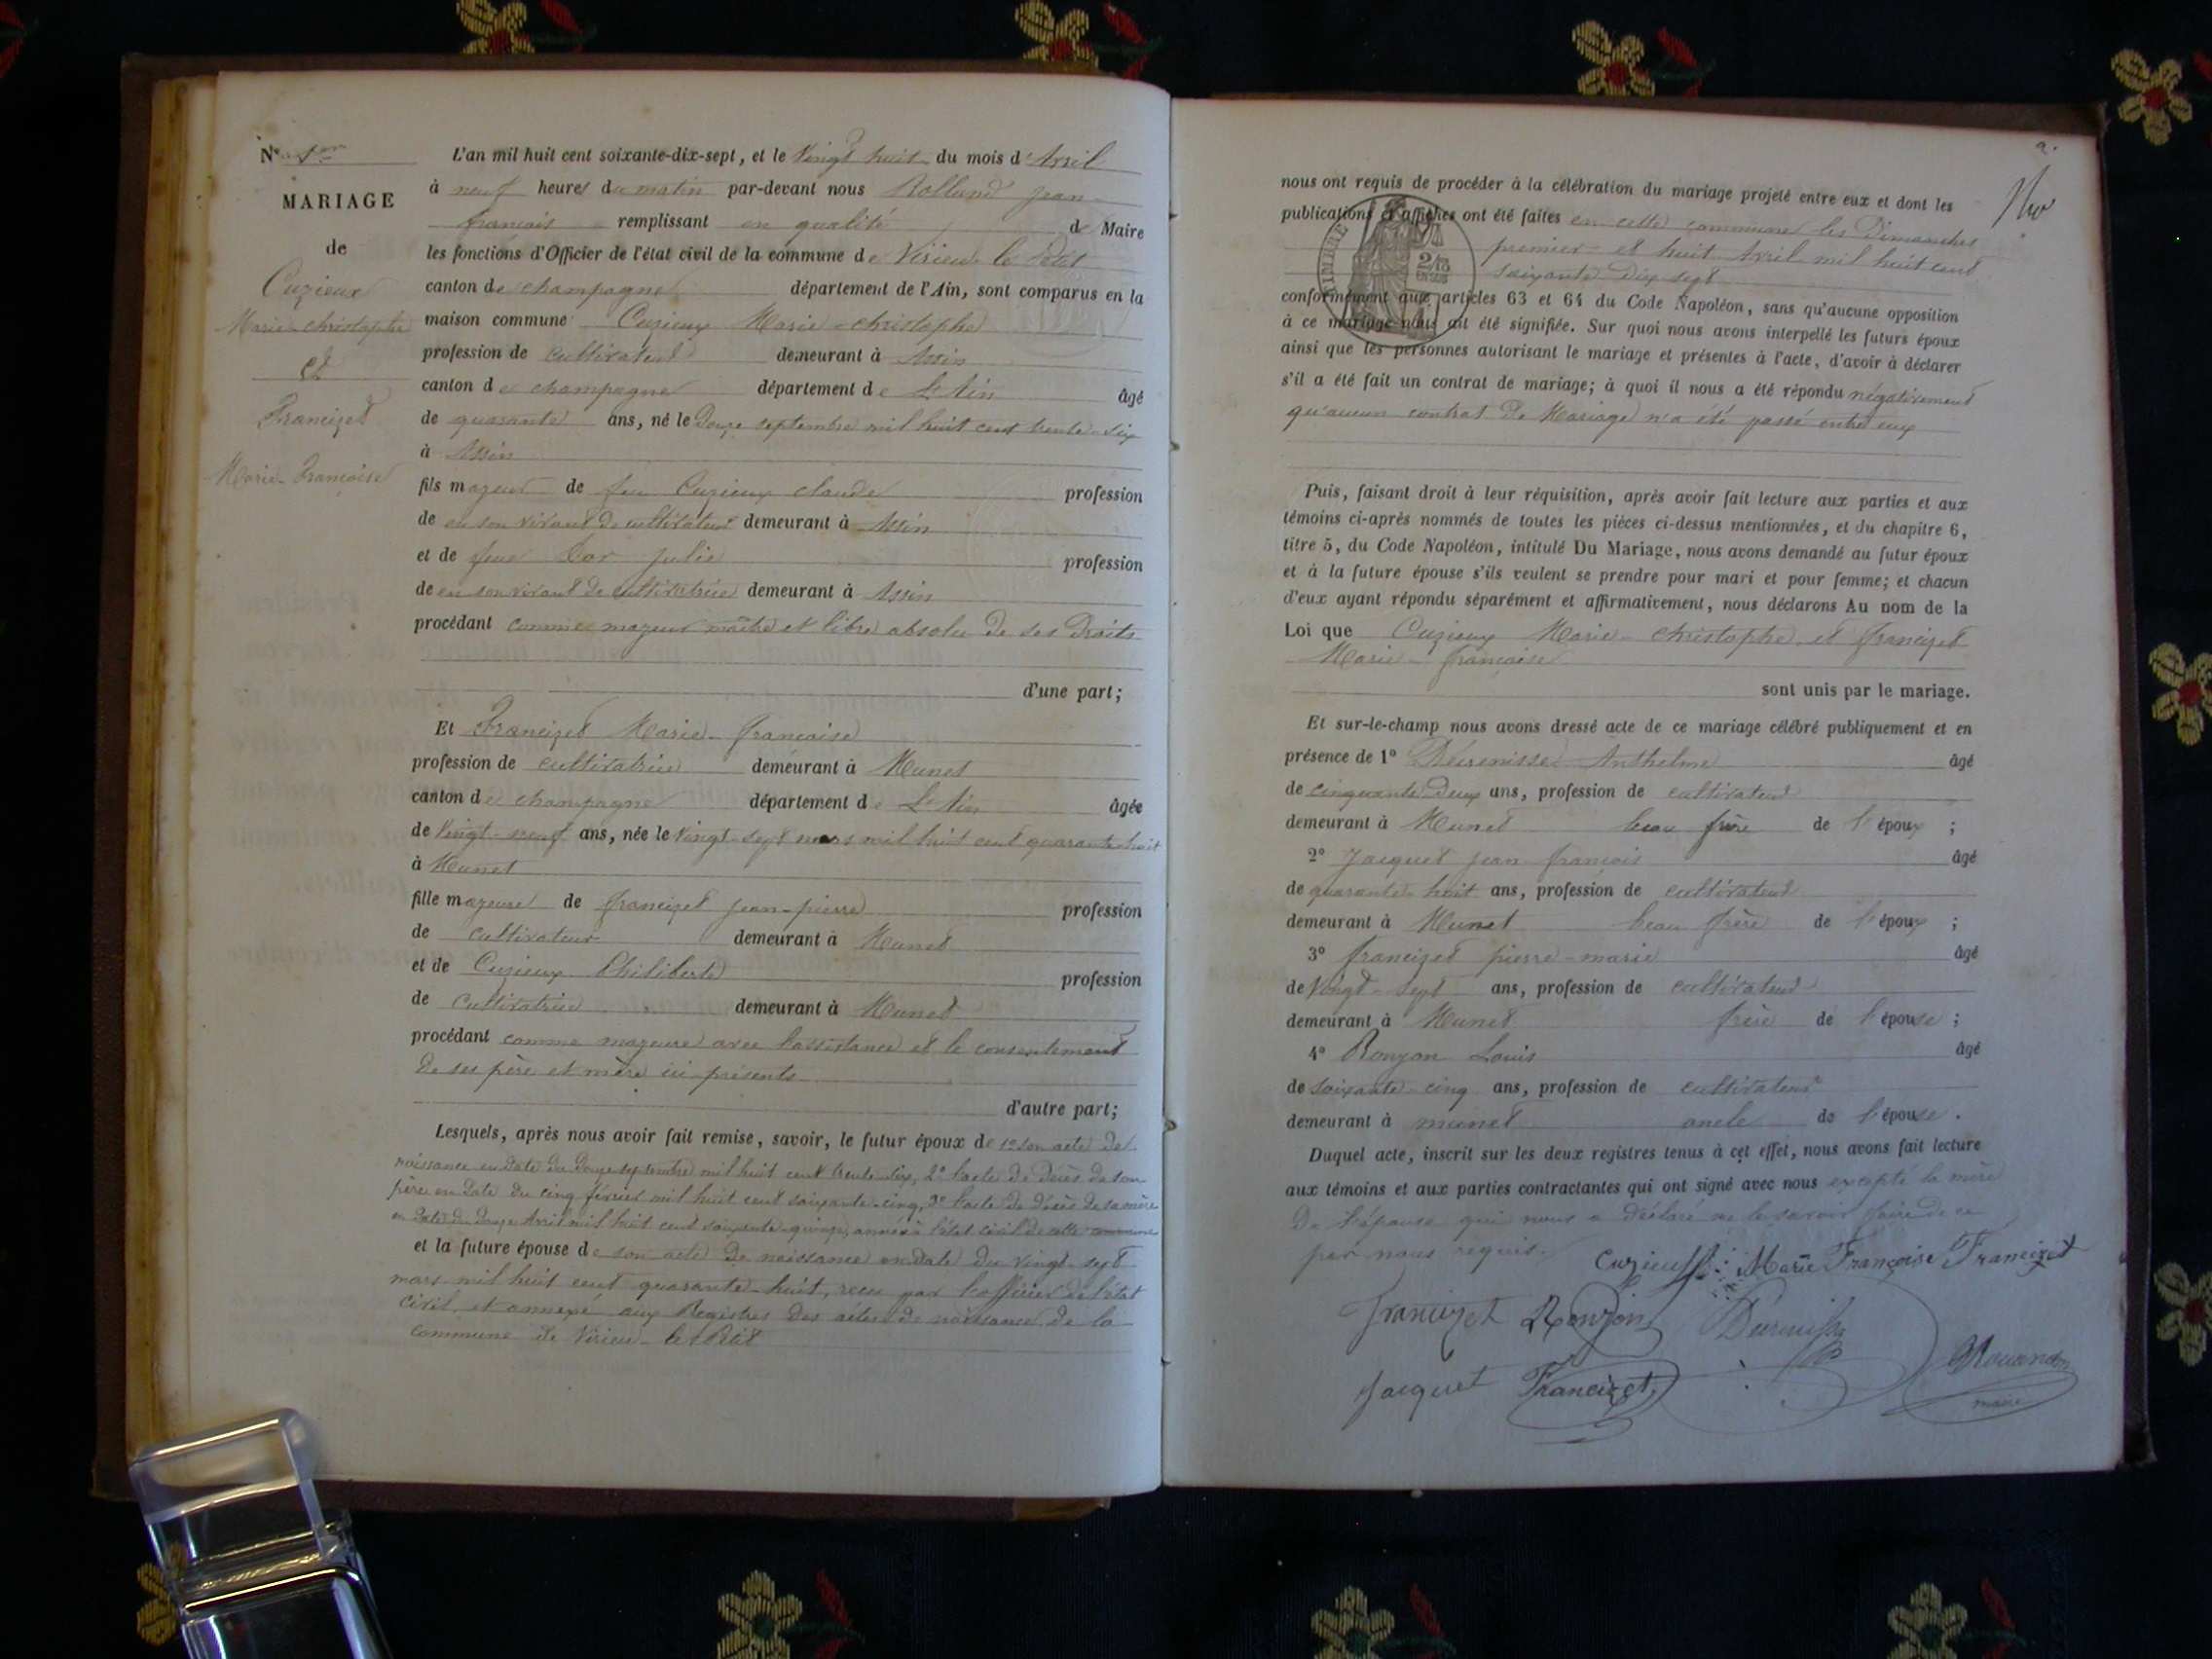 N° 1er
MARIAGE
de
Cuzieux
Marie-christophe
et
Francizet
Marie-Françoise
L'an mil huit cent soixante-dix-sept, et le Vingt huit du mois d'Avril
à neuf heures du matin par-devant nous Rolland jean-
françois remplissant en qualité de Maire
les fonctions d'Officier de l'état civil de la commune de Virieu le Petit
canton de champagne département de l'Ain, sont comparus en la
maison commune Cuzieux Marie-christophe
profession de cultivateur demeurant à Assin
canton de champagne département de L'Ain âgé
de quarante ans, né le Douze septembre mil huit cent trente-six
à Assin
fils majeur de feu Cuzieux claude profession
de en son vivant de cultivateur demeurant à Assin
et de feue Bar julie profession
de en son vivant de cultivatrice demeurant à Assin
procédant comme majeur maître et libre absolu de ses Droits
d'une part;
Et Francizet Marie-françoise
profession de cultivatrice demeurant à Munet
canton de champagne département de L'Ain âgée
de Vingt-neuf ans, née le Vingt-sept mars mil huit cent quarante-huit
à Munet
fille majeure de francizet jean-pierre profession
de cultivateur demeurant à Munet
et de Cuzieux Philiberte profession
de cultivatrice demeurant à Munet
procédant comme majeure avec l'assistance et le consentement
de ses père et mère ici présents
d'autre part;
Lesquels, après nous avoir fait remise, savoir, le futur époux de 1° son acte de
naissance en date du Douze septembre mil huit cent trente-six, 2° l'acte de Décès de son
père en date du cinq février mil huit cent soixante-cinq, 3° l'acte de Décès de sa mère
en date du Douze Avril mil huit cent soixante-quinze, annexé à l'état civil de cette commune
et la future épouse de son acte de naissance en date du vingt-sept
mars mil huit cent quarante-huit, reçu par l'officier de l'état
civil et annexé aux Registres des actes de naissance de la
commune de Virieu-le-Petit
2.
nous ont requis de procéder à la célébration du mariage projeté entre eux et dont les
publications et affiches ont été faites en cette commune les Dimanches
premier et huit Avril mil huit cent
soixante Dix sept
TIMBRE
conformément aux articles 63 et 64 du Code Napoléon, sans qu'aucune opposition
à ce mariage nous ait été signifiée. Sur quoi nous avons interpellé les futurs époux
ainsi que les personnes autorisant le mariage et présentes à l'acte, d'avoir à déclarer
s'il a été fait un contrat de mariage; à quoi il nous a été répondu négativement
qu'aucun contrat de Mariage n'a été passé entre eux
Puis, faisant droit à leur réquisition, après avoir fait lecture aux parties et aux
témoins ci-après nommés de toutes les pièces ci-dessus mentionnées, et du chapitre 6,
titre 5, du Code Napoléon, intitulé Du Mariage, nous avons demandé au futur époux
et à la future épouse s'ils veulent se prendre pour mari et pour femme; et chacun
d'eux ayant répondu séparément et affirmativement, nous déclarons Au nom de la
Loi que Cuzieux Marie-christophe et francizet
Marie-françoise
sont unis par le mariage.
Et sur-le-champ nous avons dressé acte de ce mariage célébré publiquement et en
présence de 1° Anthelme âgé
de cinquante Deux ans, profession de cultivateur
demeurant à Munet beau frère de l'époux ;
2° Jacquet jean françois âgé
de quarante-huit ans, profession de cultivateur
demeurant à Munet beau frère de l'époux ;
3° francizet pierre-marie âgé
de Vingt-sept ans, profession de cultivateur
demeurant à Munet frère de l'épouse ;
4° Ronzon Louis âgé
de soixante-cinq ans, profession de cultivateur
demeurant à munet oncle de l'épouse .
Duquel acte, inscrit sur les deux registres tenus à cet effet, nous avons fait lecture
aux témoins et aux parties contractantes qui ont signé avec nous excepté la mère
de l'épouse qui nous a déclaré ne le savoir faire de ce
par nous requis.
Cuzieux Marie Françoise Francizet
Francizet Ronzon
Jacquet Francizet
maire